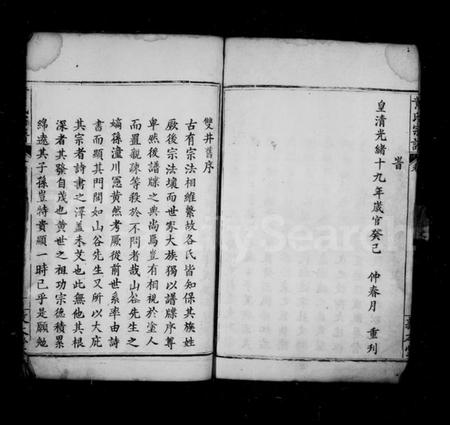 首
皇清光緒十九年歲官癸巳 仲春月 重刊
雙井舊序
古有宗法相維繫故各氏皆知保其族姓
厥後宗法壞而世家大族獨以譜牒序尊
卑然後譜牒之典尚焉豈有相視於塗人
而置親疎等殺於不問者哉山谷先生之
嫡孫潼川冕黃然考厥從前世系率由詩
書而顯其門閭如山谷先生又所以大庇
其宗者詩書之澤蓋未艾也此無他其根
深者其發自茂也黃世之祖功宗德積累
綿遠其子孫豈特貴顯一時已乎是願勉